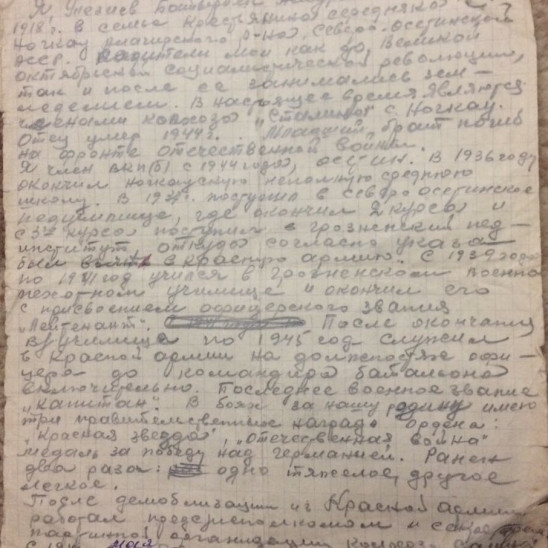 Я, Тезиев
1918 г. в семье крестьянина середняка
Ногкау Алагирского р-на, Северо-Осетинской
АССР. Родители мои как до Великой
октябрьской социалистической революции,
так и после ее занимались зем-
леделием. В настоящее время являются
членами колхоза „Сталина" с. Ногкау.
Отец умер 1944 г. Младший брат погиб
на фронте отечественной войны.
Я член ВКП(б) с 1944 года, осетин. В 1936 году
окончил Ногкаускую неполную среднюю
школу. В поступил в северо осетинское
педучилище, где окончил 2 курса и
с 3го курса поступил в грозненский пед-
институт, откуда согласно указа
был взят в красную армию. С 1939 года
по 1941 год учился в грозненском военно
пехотном училище и окончил его
с присвоением офицерского звания
„Лейтенант". После окончания
училища по 1945 год служил
в Красной армии на должностях офи-
цера до командира батальона
включительно. Последнее военное звание
„Капитан". В боях за нашу родину имею
три правительственные награды ордена:
„Красная звезда", „Отечественная война"
медаль за победу над германией. Ранен
два раза: одно тяжелое, другое
легкое.
После демобилизации из Красной армии
работал предсельисполкомом и секретарем
партийной организации колхоза